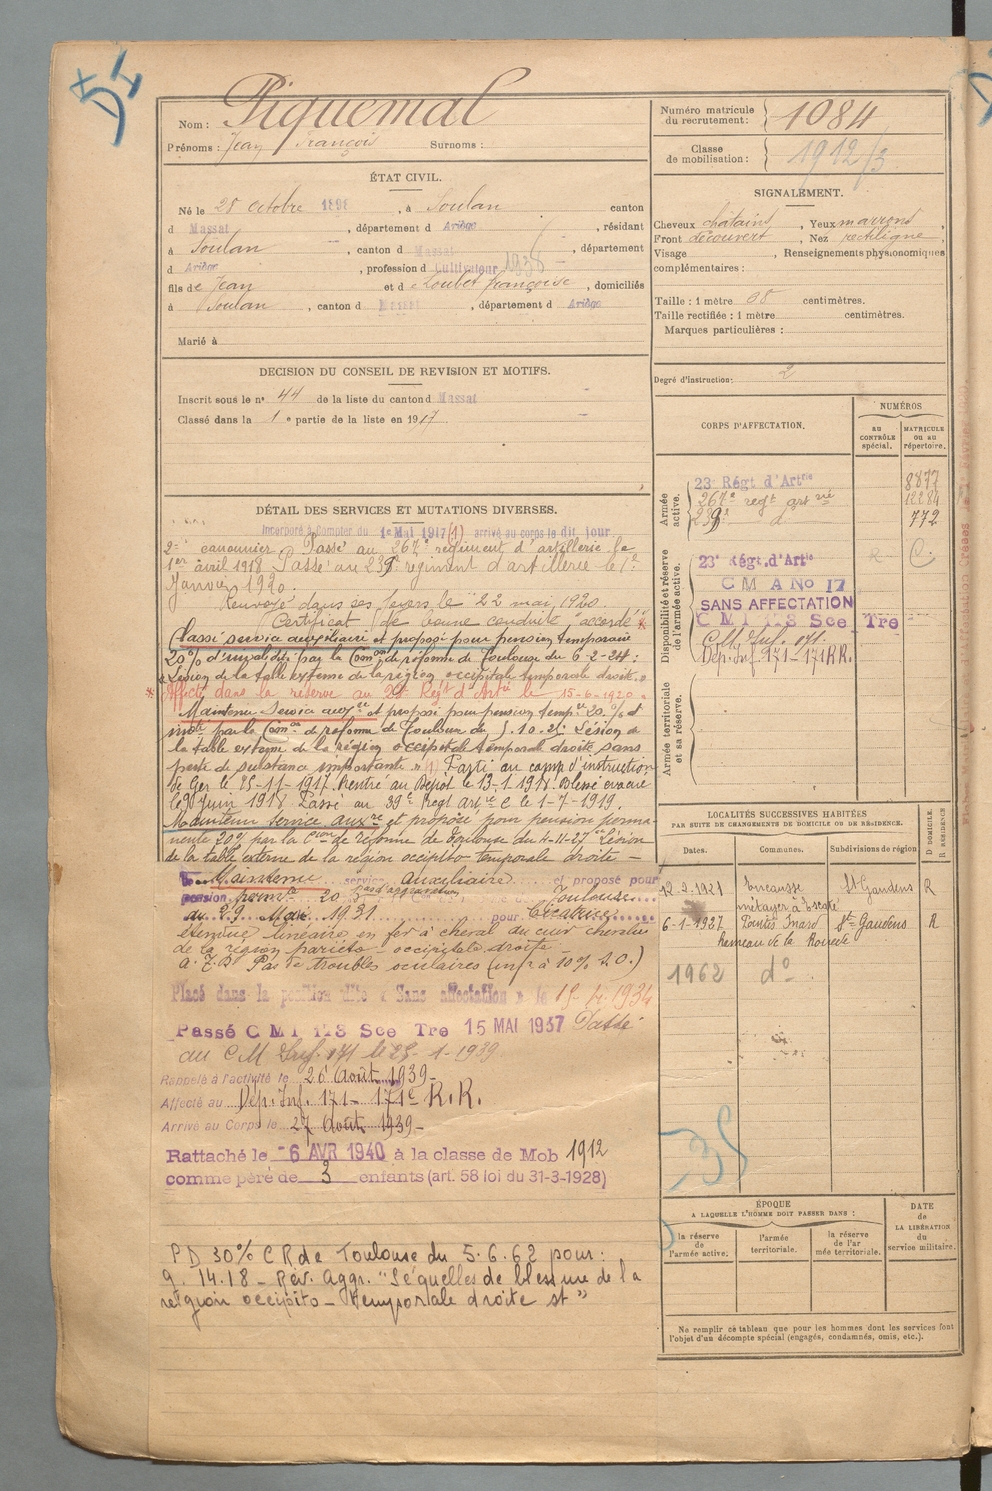 Nom : Piquemal
Prénoms : Jean François Surnoms :
Numéro matricule du recrutement : 1084
Classe de mobilisation : 1912/3
ÉTAT CIVIL.
Né le 28 octobre 1898, à Soulan canton
d Massat, département d Ariège, résidant
à Soulan, canton d Massat, département
d Ariège, profession d Cultivateur 1938
fils de Jean et de Loubet françoise, domiciliés
à Soulan, canton d Massat, département d Ariège
Marié à
SIGNALEMENT.
Cheveux châtains, Yeux marrons,
Front découvert, Nez rectiligne,
Visage , Renseignements physionomiques
complémentaires :
Taille : 1 mètre 68 centimètres.
Taille rectifiée : 1 mètre centimètres.
Marques particulières :
Degré d'instruction : 2
DECISION DU CONSEIL DE REVISION ET MOTIFS.
Inscrit sous le n° 44 de la liste du canton d Massat
Classé dans la 1 e partie de la liste en 1917.
CORPS D'AFFECTATION.
NUMÉROS
au CONTRÔLE spécial.
MATRICULE OU AU répertoire.
Armée active.
23e Régt d'Artrie 8877
267e regt artrie 12284
239e do 772
Disponibilité et réserve de l'armée active.
23e Régt d'Artie R C.
C M A No 17
SANS AFFECTATION
C M I 173 Sce Tre
C.M. Inf. 171.
Dép. Inf. 171 - 171 R.R.
Armée territoriale et sa réserve.
DÉTAIL DES SERVICES ET MUTATIONS DIVERSES.
Incorporé à compter du 1e Mai 1917 (1) arrivé au corps le dit jour
2e canonnier. Passé au 267e régiment d'artillerie le
1er avril 1918 Passé au 239e régiment d'artillerie le 1er
Janvier 1920.
Renvoyé dans ses foyers le 22 mai 1920
Certificat de bonne conduite "accordé"
Passé service auxiliaire et proposé pour pension temporaire
20% d'invalidité par la Comon de réforme de Toulouse du 6-2-24 :
"Lésion de la table externe de la région occipitale temporale droite."
Affecté dans la réserve au 23e Regt d'Artie le 15-6-1920
Maintenu Service auxre et proposé pour pension tempre 20% et
par la Comon de réforme de Toulouse du 5.10.25 "Lésion de
la table externe de la région occipitale temporale droite, sans
perte de substance importante" (1) Parti au camp d'instruction
de Ger le 25-11-1917. Rentré au Dépôt le 13-1-1918. Blessé évacué
le 9 Juin 1918. Passé au 39e Regt artie C le 1-7-1919.
Maintenu service auxre et proposé pour pension perma-
nente 20% par la Con de réforme de Toulouse du 4-11-27 "Lésion
de la table externe de la région occipito temporale droite -
Maintenu service auxiliaire et proposé pour
pension permte 20 Toulouse
du 29 Mai 1931 pour Cicatrice
étendue linéaire en fer à cheval du cuir chevelu
de la région pariéto-occipitale droite -
Pas de troubles oculaires (infr à 10% 20.)
Placé dans la position dite « Sans affectation » le 15-4-1934
Passé C M I 173 Sce Tre 15 MAI 1937 Passé
au C M Inf. 171 le 25-1-1939
Rappelé à l'activité le 26 Août 1939-
Affecté au Dép. Inf. 171 - 171e R.R.
Arrivé au Corps le 27 Août 1939-
Rattaché le -6 AVR 1940 à la classe de Mob 1912
comme père de 3 enfants (art. 58 loi du 31-3-1928)
PD 30% C R de Toulouse du 5.6.62 pour :
g. 14.18 - Rév. Aggr. "Séquelles de blessure de la
région occipito - temporale droite st"
LOCALITÉS SUCCESSIVES HABITÉES
PAR SUITE DE CHANGEMENTS DE DOMICILE OU DE RÉSIDENCE.
Dates. Communes. Subdivisions de région D DOMICILE R RÉSIDENCE
12-2-1921 Encausse St Gaudens R
métayer à
6-1-1927 Pointis Inard St Gaudens R
hameau de la
1962 do
ÉPOQUE
A LAQUELLE L'HOMME DOIT PASSER DANS :
la réserve de l'armée active.
l'armée territoriale.
la réserve de l'armée territoriale.
DATE de LA LIBÉRATION du service militaire.
Ne remplir ce tableau que pour les hommes dont les services font
l'objet d'un décompte spécial (engagés, condamnés, omis, etc.).